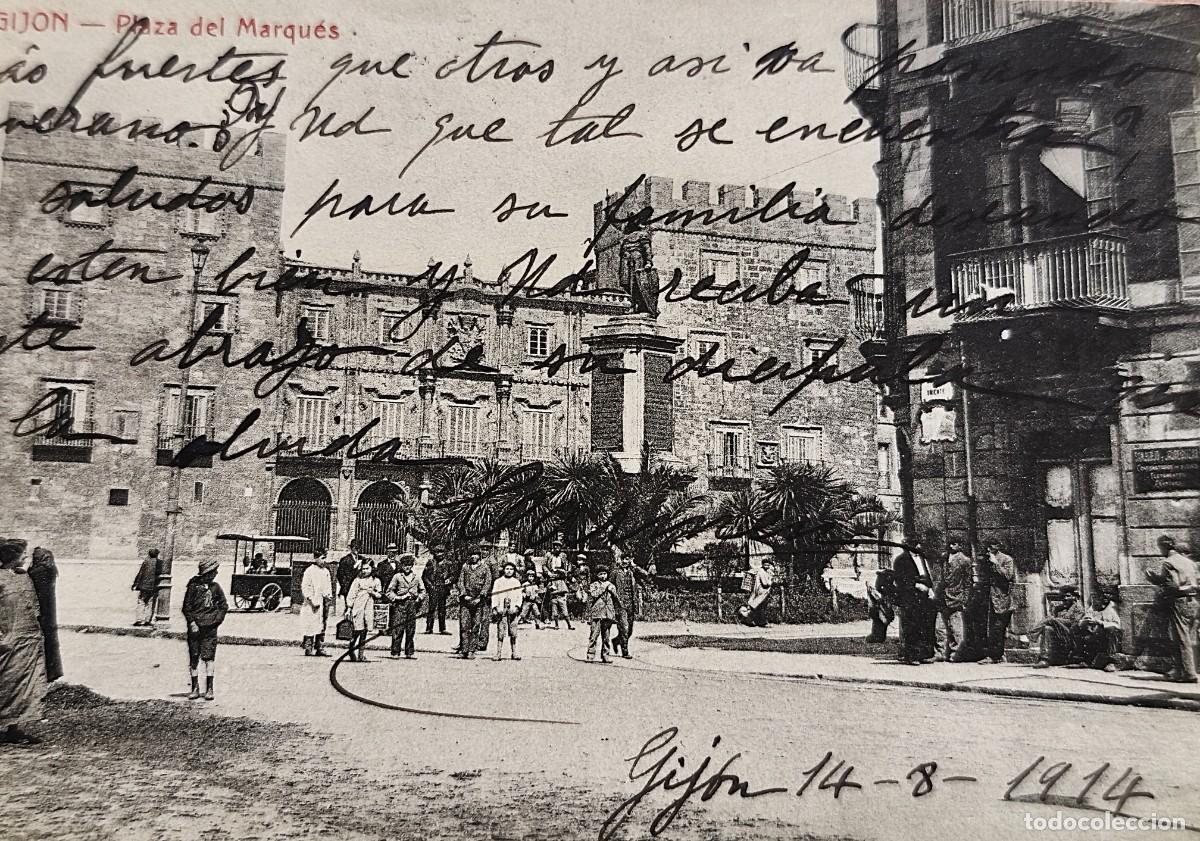 GIJON — Plaza del Marqués
ás fuertes que otros y asi va pasando
verano. Y Vd que tal se encuentra?
saludos para su familia deseando
esten bien y Vd reciba un
te abrazo de su discipula que
la olvida
Gijón 14-8-1914
ORIENTE
todocoleccion